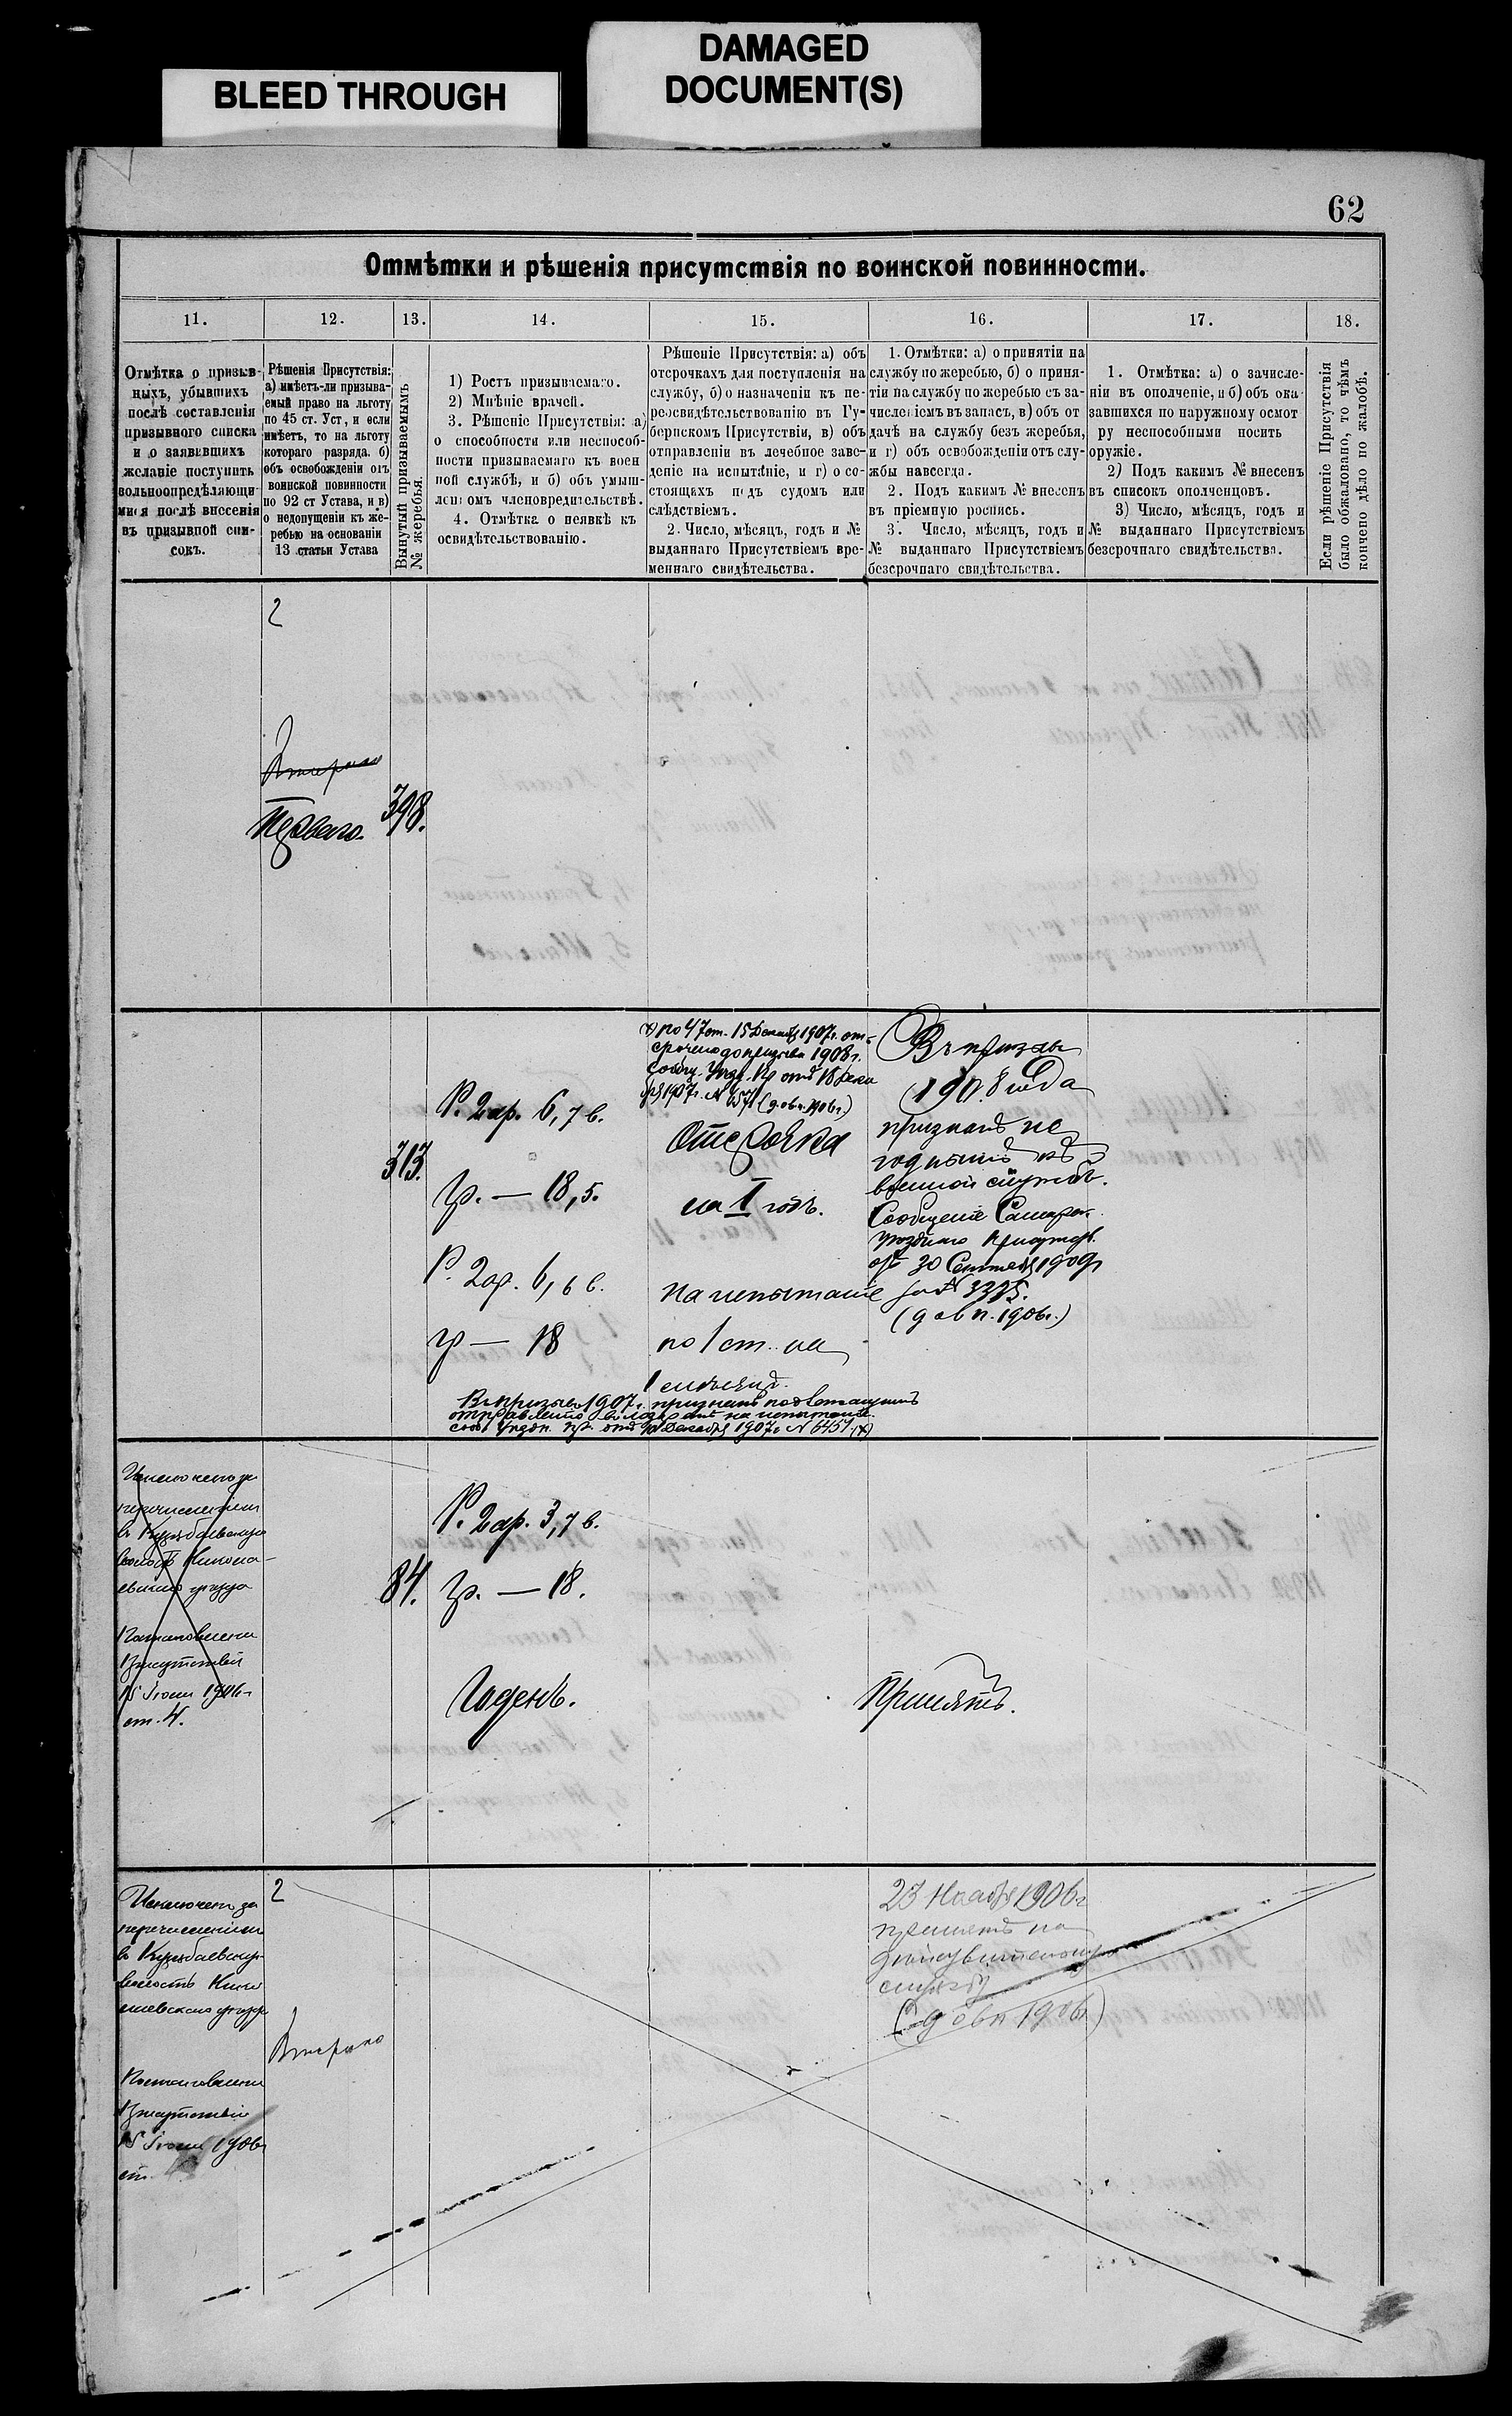 BLEED THROUGH
DAMAGED
DOCUMENT(S)
62
Отмѣтки и рѣшенія присутствія по воинской повинности.
11.
12.
13.
14.
15.
16.
17.
18.
Отмѣтка о призыв-
ныхъ, убывшихъ
послѣ составленія
призывного списка
и о заявившихъ
желаніе поступить
вольноопредѣляющи-
мися послѣ внесенія
въ призывной спи-
сокъ.
Рѣшенія Присутствія:
а) имѣетъ-ли призыва-
емый право на льготу
по 45 ст. Уст, и если
имѣетъ, то на льготу
котораго разряда. б)
объ освобожденіи отъ
воинской повинности
по 92 ст Устава, и в)
о недопущеніи къ же-
ребью на основаніи
13 статьи Устава
Вынутый призываемымъ
№ жеребья.
1) Ростъ призываемаго.
2) Мнѣніе врачей.
3. Рѣшеніе Присутствія: а)
о способности или неспособ-
ности призываемаго къ воен
ной службѣ, и б) объ умыш-
леномъ членовредительствѣ.
4. Отмѣтка о неявкѣ къ
освидѣтельствованію.
Рѣшеніе Присутствія: а) объ
отсрочкахъ для поступленія на
службу, б) о назначеніи къ пе-
реосвидѣтельствованію въ Гу-
бернскомъ Присутствіи, в) объ
отправленіи въ лечебное заве-
деніе на испытаніе, и г) о со-
стоящихъ подъ судомъ или
слѣдствіемъ.
2. Число, мѣсяцъ, годъ и №
выданнаго Присутствіемъ вре-
меннаго свидѣтельства.
1. Отмѣтки: а) о принятіи на
службу по жеребью, б) о приня-
тіи на службу по жеребью съ за-
численіемъ въ запасъ, в) объ от
дачѣ на службу безъ жеребья,
и г) объ освобожденіи отъ слу-
жбы навсегда.
2. Подъ какимъ № внесенъ
въ пріемную роспись.
3. Число, мѣсяцъ, годъ и
№ выданнаго Присутствіемъ
безсрочнаго свидѣтельства.
1. Отмѣтка: а) о зачисле-
ніи въ ополченіе, и б) объ ока-
завшихся по наружному осмот
ру неспособными носить
оружіе.
2) Подъ какимъ № внесенъ
въ списокъ ополченцовъ.
3) Число, мѣсяцъ, годъ и
№ выданнаго Присутствіемъ
безсрочнаго свидѣтельства.
Если рѣшеніе Присутствія
было обжаловано, то чѣмъ
кончено дѣло по жалобѣ.
2
Второго
Перваго.
398.
313.
Р. 2 ар. 6,7 в.
гр. — 18,5.
Р. 2 ар. 6,6 в.
гр — 18
х) по 47 ст. 15 Декабря 1907 г. от-
срочено до призыва 1908 г.
(д. о в п. 1906 г.)
Отсрочка
на I годъ.
на испытаніе
по 1 ст. на
1 мѣсяцъ.
Въ призывъ 1907 г. признанъ подлежащимъ
отправленію въ лазаретъ на испытаніе.
Декабря 1907 г. № 6457 (х)
Въ призывъ
1908 года
признанъ не
годнымъ къ
военной службѣ.
Сообщеніе Самарск.
уѣзднаго Присутств.
отъ 30 Сентября 1909 г
за №
(д о в п. 1906 г.)
Исключенъ за
перечисленіемъ
въ
волость Никола-
евскаго уѣзда
Постановленіе
Присутствія
15 Іюня 1906 г
ст. 4.
84.
Р. 2 ар. 3,7 в.
гр. — 18.
Годенъ.
Принятъ.
Исключенъ за
перечисленіемъ
въ
волость Нико
лаевскаго уѣзда
Постановленіе
Присутствія
15 Іюня 1906 г
ст. 4
2
Второго
23 Ноября 1906 г
принятъ на
дѣйствительную
службу
(д о в п 1906 г)